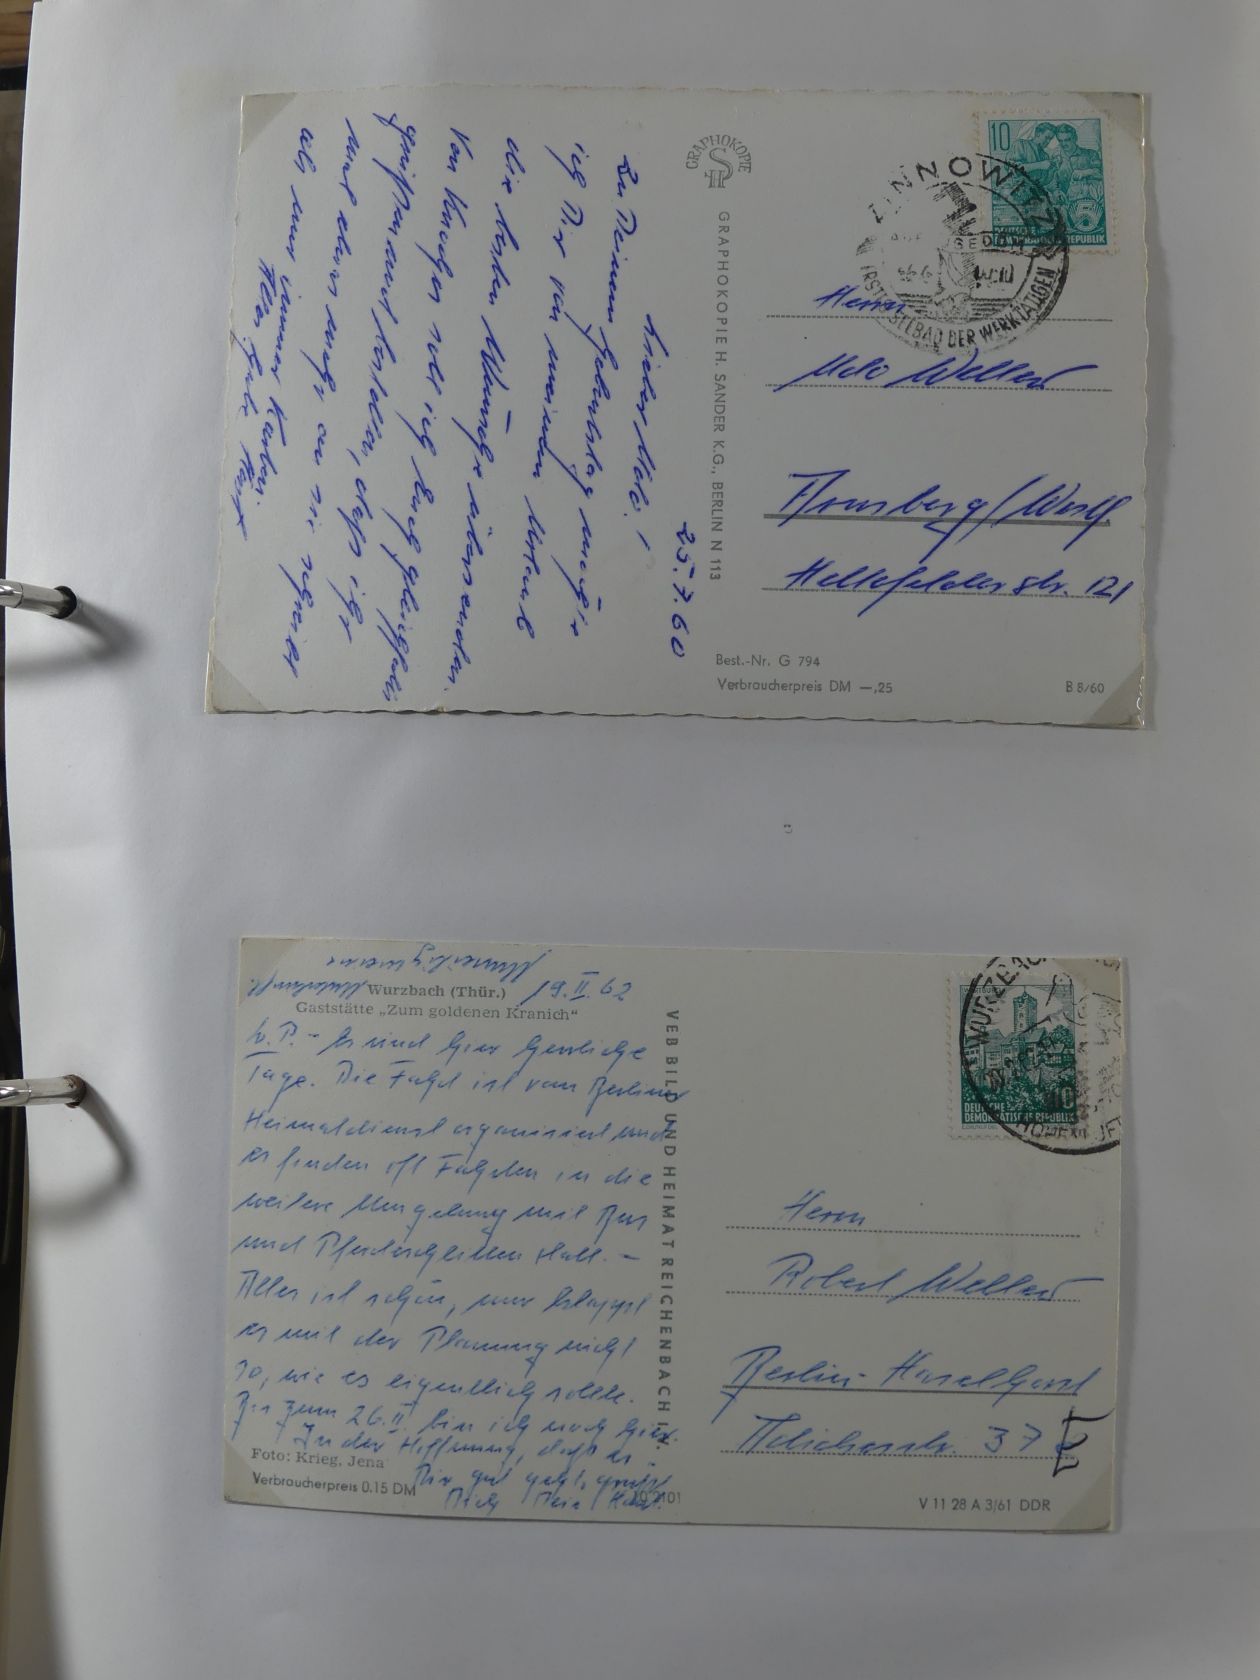 GRAPHOKOPIE
GRAPHOKOPIE H. SANDER K.G., BERLIN N 113
25.7.60
Lieber Udo!
Zu Deinem Geburtstag möchte
ich Dir von meinem Urlaub
die besten Wünsche übersenden.
Von soll ich Euch gleichfalls
grüßen und bestellen, daß ihr
und eben mehr an sie schreibt
als nur immer Karten.
Alles Gute
10
DEUTSCHE
DEMOKRATISCHE REPUBLIK
ZINNOWITZ
AUF USEDOM
ERSTES SEEBAD DER WERKTÄTIGEN
Herrn
Udo Weller
Arnsberg/Westf
Hellefelder Str. 121
Best.-Nr. G 794
Verbraucherpreis DM —,25
B 8/60
19.II.62
Wurzbach (Thür.)
Gaststätte „Zum goldenen Kranich"
L. P. - Es sind hier herrliche
Tage. Die Fahrt ist vom Berliner
Heimatdienst organisiert und
es finden oft Fahrten in die
weitere Umgebung mit Bus
und Pferdeschlitten statt. -
Alles ist schön, nur klappt
es mit der Planung nicht
so, wie es eigentlich sollte.
Bis zum 26.II. bin ich noch hier.
In der Hoffnung, daß es
Dir gut geht, grüßt
Dich Dein
Foto: Krieg, Jena
Verbraucherpreis 0.15 DM
VEB BILD UND HEIMAT REICHENBACH I. V.
WURZBACH
DEUTSCHE
DEMOKRATISCHE REPUBLIK
10
Herrn
Robert Weller
Berlin-Haselhorst
37
V 11 28 A 3/61 DDR